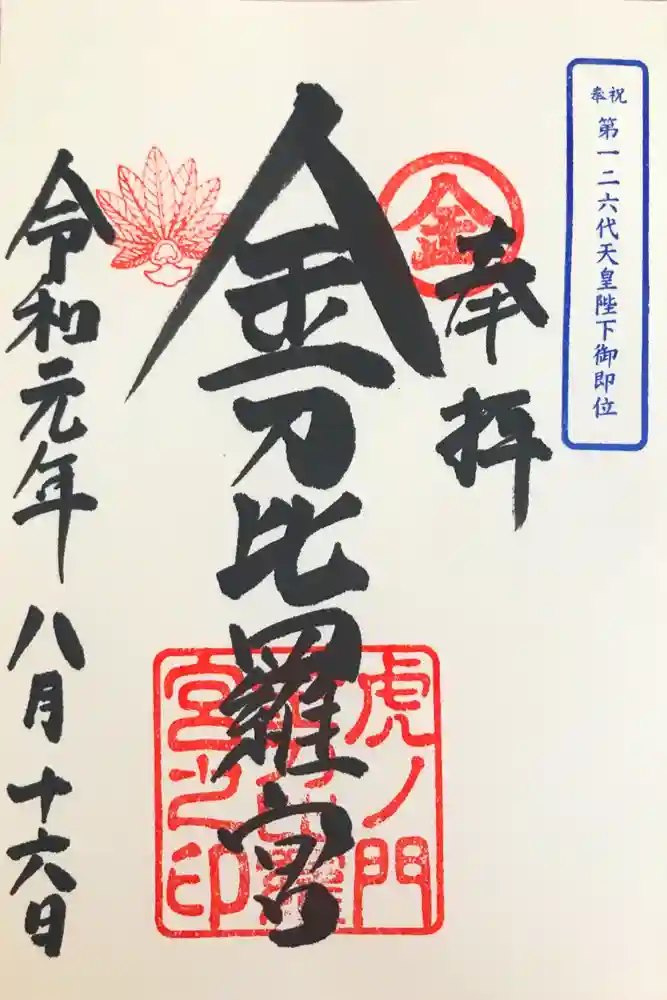 奉祝
第一二六代天皇陛下御即位
奉拝
金
金刀比羅宮
虎ノ門
金刀比羅
宮之印
令和元年
八月十六日